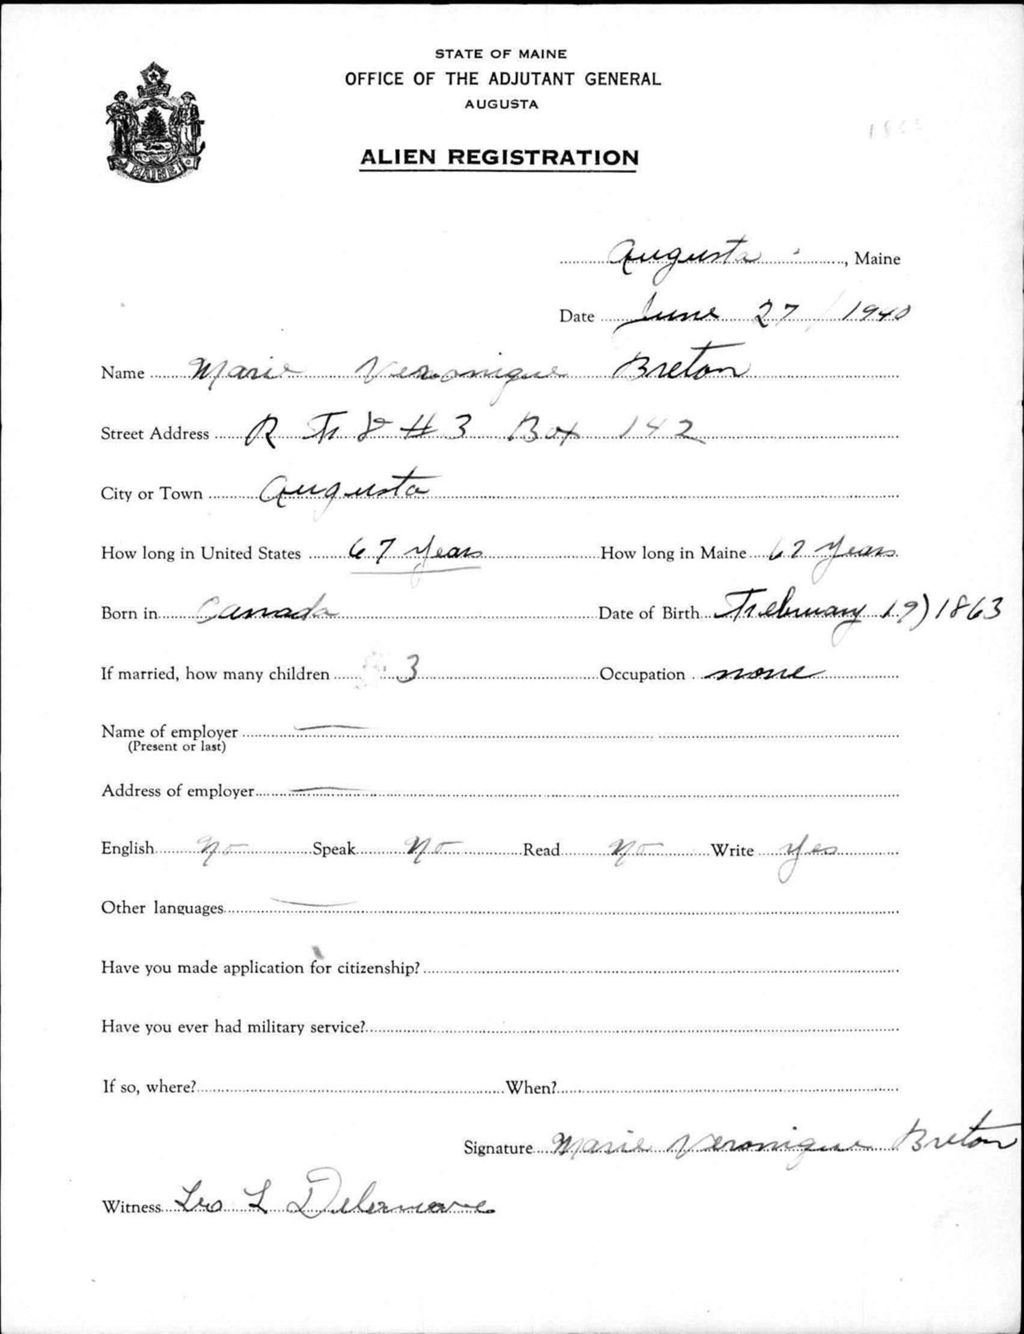 STATE OF MAINE
OFFICE OF THE ADJUTANT GENERAL
AUGUSTA
MAINE
ALIEN REGISTRATION
Augusta, Maine
Date June 27 / 1940
Name Marie Veronique Breton
Street Address R Fr D # 3 Box 142
City or Town Augusta
How long in United States 67 years How long in Maine 67 years
Born in Canada Date of Birth February 19) 1863
If married, how many children 3 Occupation none
Name of employer
(Present or last)
Address of employer
English No Speak No Read No Write yes
Other languages
Have you made application for citizenship?
Have you ever had military service?
If so, where? When?
Signature Marie Veronique Breton
Witness Leo L